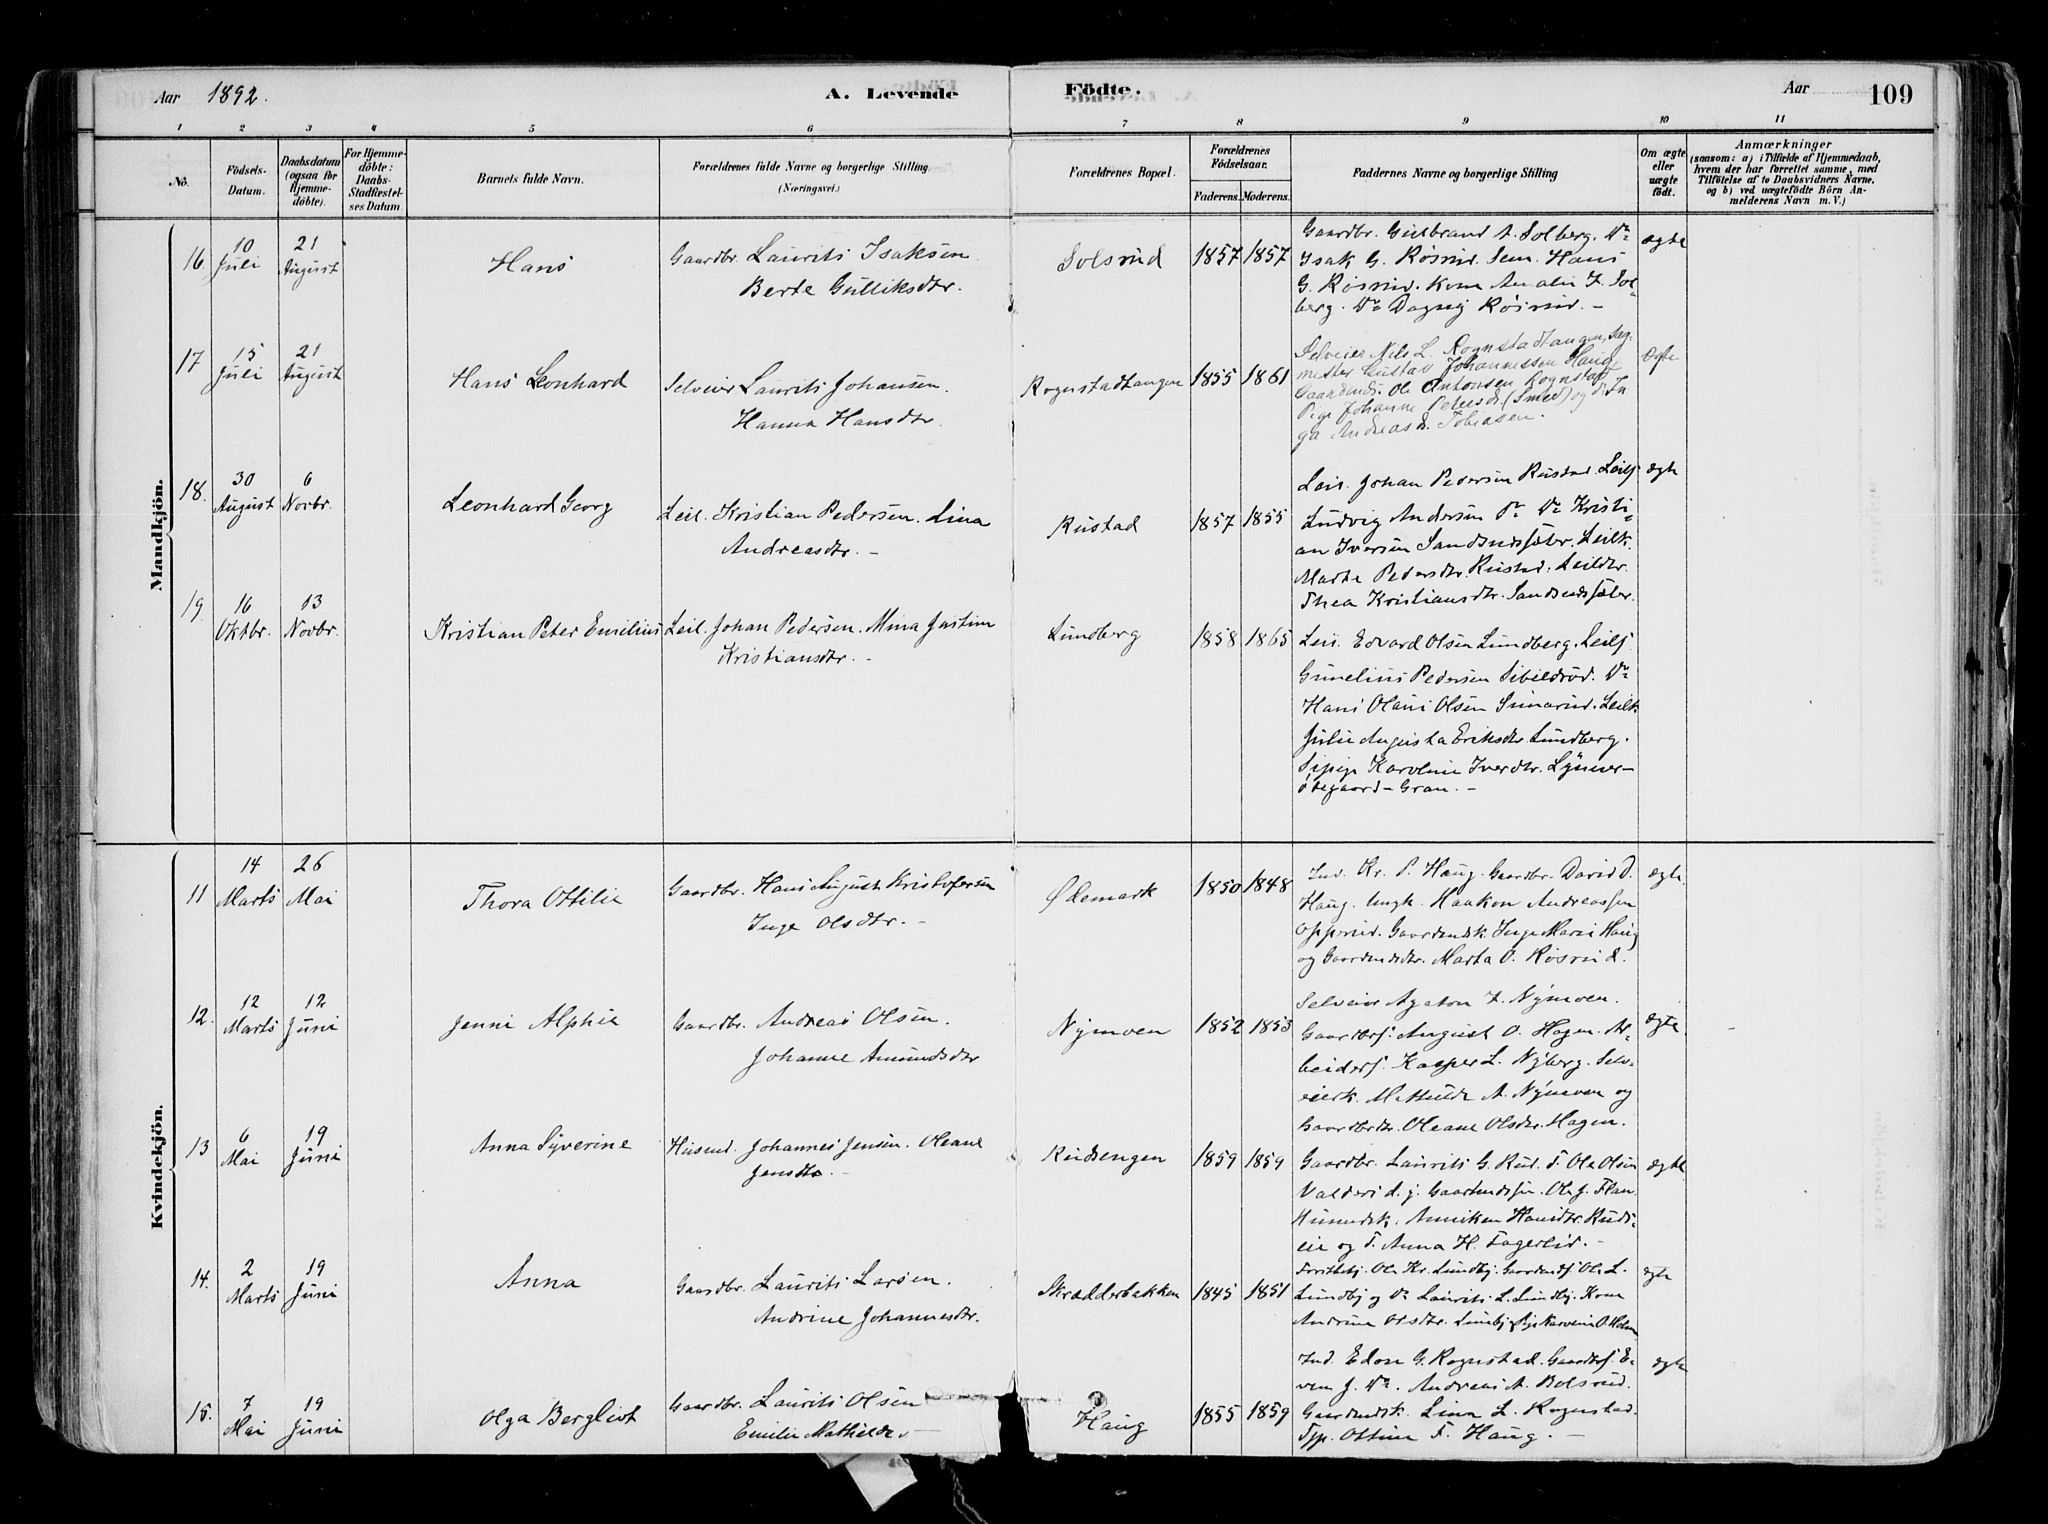 Aar 1892. A. Levende Födte. Aar 109
1 2 3 4 5 6 7 8 9 10 11
No. Födsels-Datum. Daabsdatum (ogsaa for Hjemmedöbte). For Hjemmedöbte: Daabs-Stadfæstelses Datum. Barnets fulde Navn. Forældrenes fulde Navne og borgerlige Stilling. (Næringsvei.) Forældrenes Bopæl. Forældrenes Födselsaar. Faderens. Moderens. Faddernes Navne og borgerlige Stilling Om ægte eller uægte födt. Anmærkninger (saasom: a) i Tilfælde af Hjemmedaab, hvem der har forrettet samme, med Tilföielse af to Daabsvidners Navne, og b) ved uægtefödte Börn Anmelderens Navn m. V.)
Mandkjön.
16. 10 Juli 21 August Hans Gaardbr. Laurits Isaksen Berte Gulliksdtr. Solsrud 1857 1857 ægte
Gaardbr. Gulbrand A. Solberg. Do
Isak G. Rösrud. Sem. Hans
G. Rösrud. Kone Amalie F. Sol-
berg. Do Dagny Rösrud. -
17 15 Juli 21 August Hans Leonhard Selveier Laurits Johansen. Hanna Hansdtr. Rognstadtangen 1855 1861 Ægte
Selveier Nils L. Rognstadtangen, Sag-
mester Gustav Johannessen Haug
Gaardmds. Ole Antonsen Rognstad
Pige Johanne Petersd. (Smed) og d. In
ga Andreasd. Tobiasen.
18. 30 August 6 Novbr. Leonhard Georg Leil. Kristian Pedersen. Lina Andreasdtr. - Rustad 1857 1855 ægte
Leil. Johan Pedersen Rustad. Leils.
Ludvig Andersen Do Do Kristi-
an Iversen Sandsundsæter. Leilk.
Marte Pedersdtr. Rustad. Leildtr.
Thea Kristiansdtr.
19. 16 Oktbr. 13 Novbr. Kristian Peter Emilius Leil. Johan Pedersen. Mina Justine Kristiansdtr. - Lundberg 1858 1865
Leil. Edvard Olsen Lundberg. Leils.
Gunelius Pedersen Do
Hans Olaus Olsen Leilk.
Julie Augusta Eriksdtr. Lundberg.
Karoline Iversdtr.
Gran. -
Kvindekjön.
11 14 Marts 26 Mai Thora Ottilie Gaardbr. Hans August Kristofersen Inge Olsdtr. - Ødemark 1850 1848 ægte.
Ind. Kr. P. Haug. Gaardbr. David D.
Haug. Ungk. Haakon Andreassen
Opperud. Gaardmdsk. Inge Marie Haug
og Gaardmdsdtr. Marta O. Rösrud.
12. 12 Marts 12 Juni Jenni Alphie Gaardbr. Andreas Olsen. Johanne Amundsdtr Nymoen 1852 1853 ægte
Selveier Agaton F. Nymoen.
Gaardbrs. August O. Hagen. Ar-
beiders. Kasper L. Nyberg. Selv-
eierk. Mathilde A. Nymoen og
Gaardbrdtr. Oleane Olsdtr. Hagen.
13 6 Mai 19 Juni Anna Syverine Husmd. Johannes Jensen. Oleane Jensdtr. - Rudsengen 1859 1859 ægte
Gaardbr. Laurits G. Rud. T. Ole Olsen
Gaardmdssøn. Ole J. Flan
Husmdsk. Anniken Hansdtr. Ruds-
eie og T. Anna H. Fagerlid. -
14. 2 Marts 19 Juni Anna Gaardbr. Laurits Larsen. Andrine Johannesdtr. Skrædderbakken 1845 1851 ægte
Ole Kr. Lundby. Gaardmds. Ole L.
Lundby og Do Laurits L. Lundby. Kone
Andrine Olsdtr. Lundby. Pige Karoline O. Holm
15. 7 Mai 19 Juni Olga Bergliot Gaardbr. Laurits Olsen Emilie Mathilde - Haug 1855 1859 ægte
Ind. Edon G. Rognstad. Gaardbrs. E-
ven J. Do. Andreas A. Bolsrud.
Gaardmdsk. Lina L. Rognstad.
Tjp. Ottine F. Haug. -